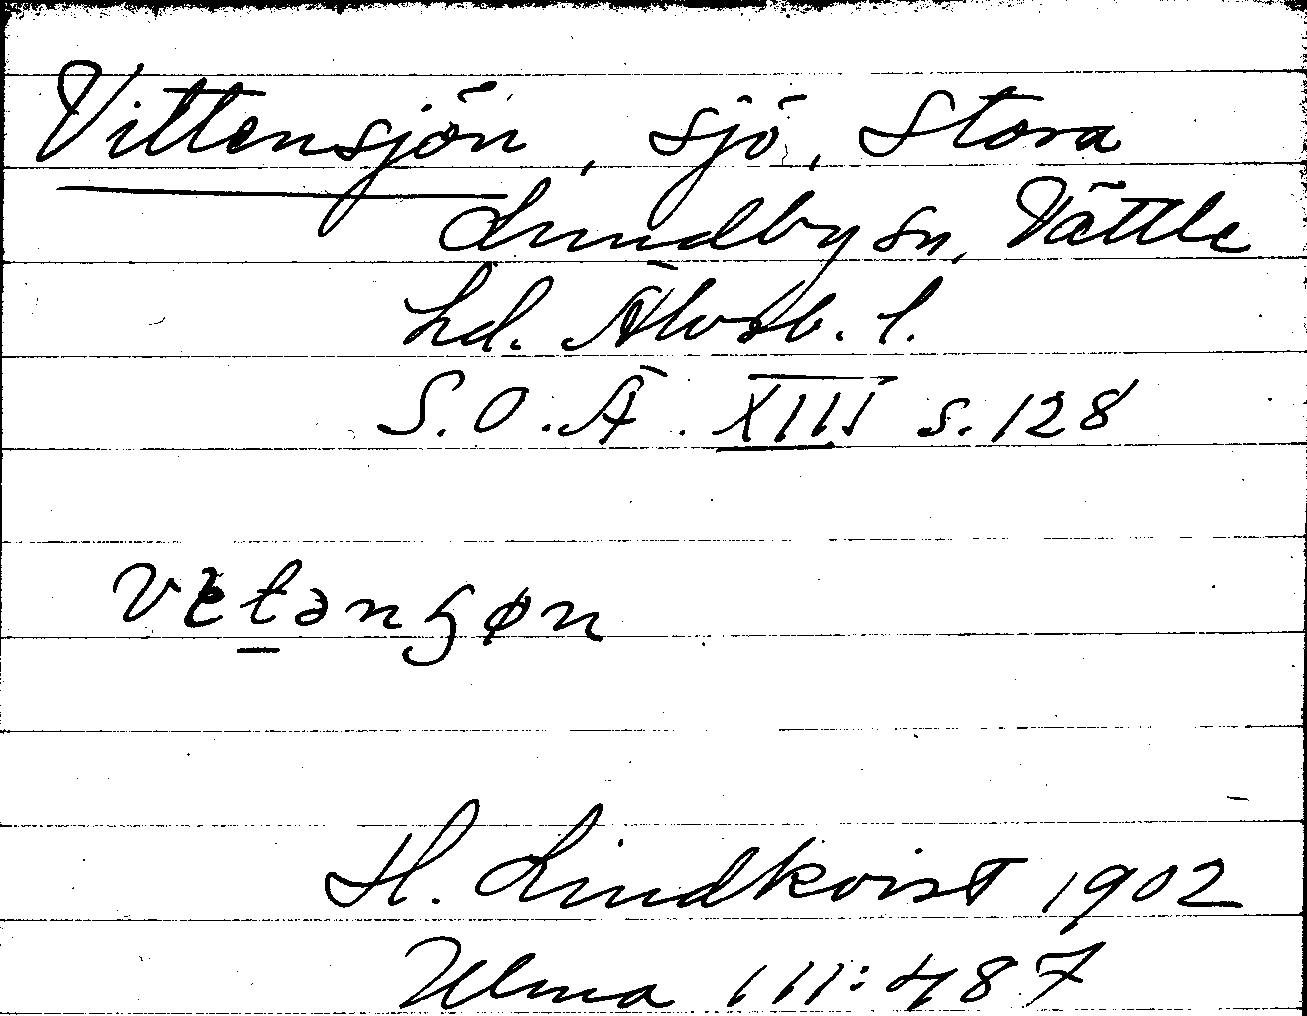 Vittensjön, sjö, Stora
Lundby sn, Vättle
hd. Älvsb. l.
S.O.Ä. XIII s. 128
vetənʒøn
H. Lindkvist 1902
Ulma 111:487